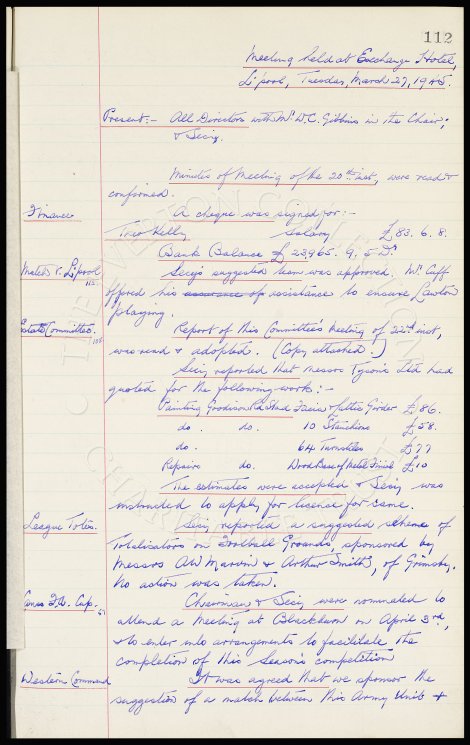 112
Meeting held at Exchange Hotel,
L'pool, Tuesday, March 27, 1945.
Present:- All Directors with Mr W.C. Gibbins in the Chair;
& Secy.
Minutes of Meeting of the 20th inst, were read &
confirmed.
Finance
A cheque was signed for:-
Theo Kelly Salary £83. 6. 8.
Bank Balance £23,965. 9. 5 Dr
Match v. L'pool
Secy's suggested team was approved. Mr. Cuff
offered his assurance of assistance to ensure Lawton
playing.
Estate Committee.
Report of this Committee's Meeting of 22nd inst,
was read & adopted. (Copy attached.)
Secy reported that Messrs Tysons Ltd had
quoted for the following work:-
Painting Goodison Rd Stand Fascia Lattice Girder £86.
do. do. 10 Stanchions £58.
do. 64 Turnstiles £77
Repairs do. Wood Base of Metal Finial £10
The estimates were accepted & Secy was
instructed to apply for licence for same.
League Totes.
Secy reported a suggested scheme of
Totalisators on Football Grounds, sponsored by
Messrs AW Marvin & Arthur Smith, of Grimsby.
No action was taken.
Lancs F.A. Cup.
Chairman & Secy were nominated to
attend a Meeting at Blackburn on April 3rd,
& to enter into arrangements to facilitate the
completion of this Season's competition
Western Command
It was agreed that we sponsor the
suggestion of a match between this Army Unit &